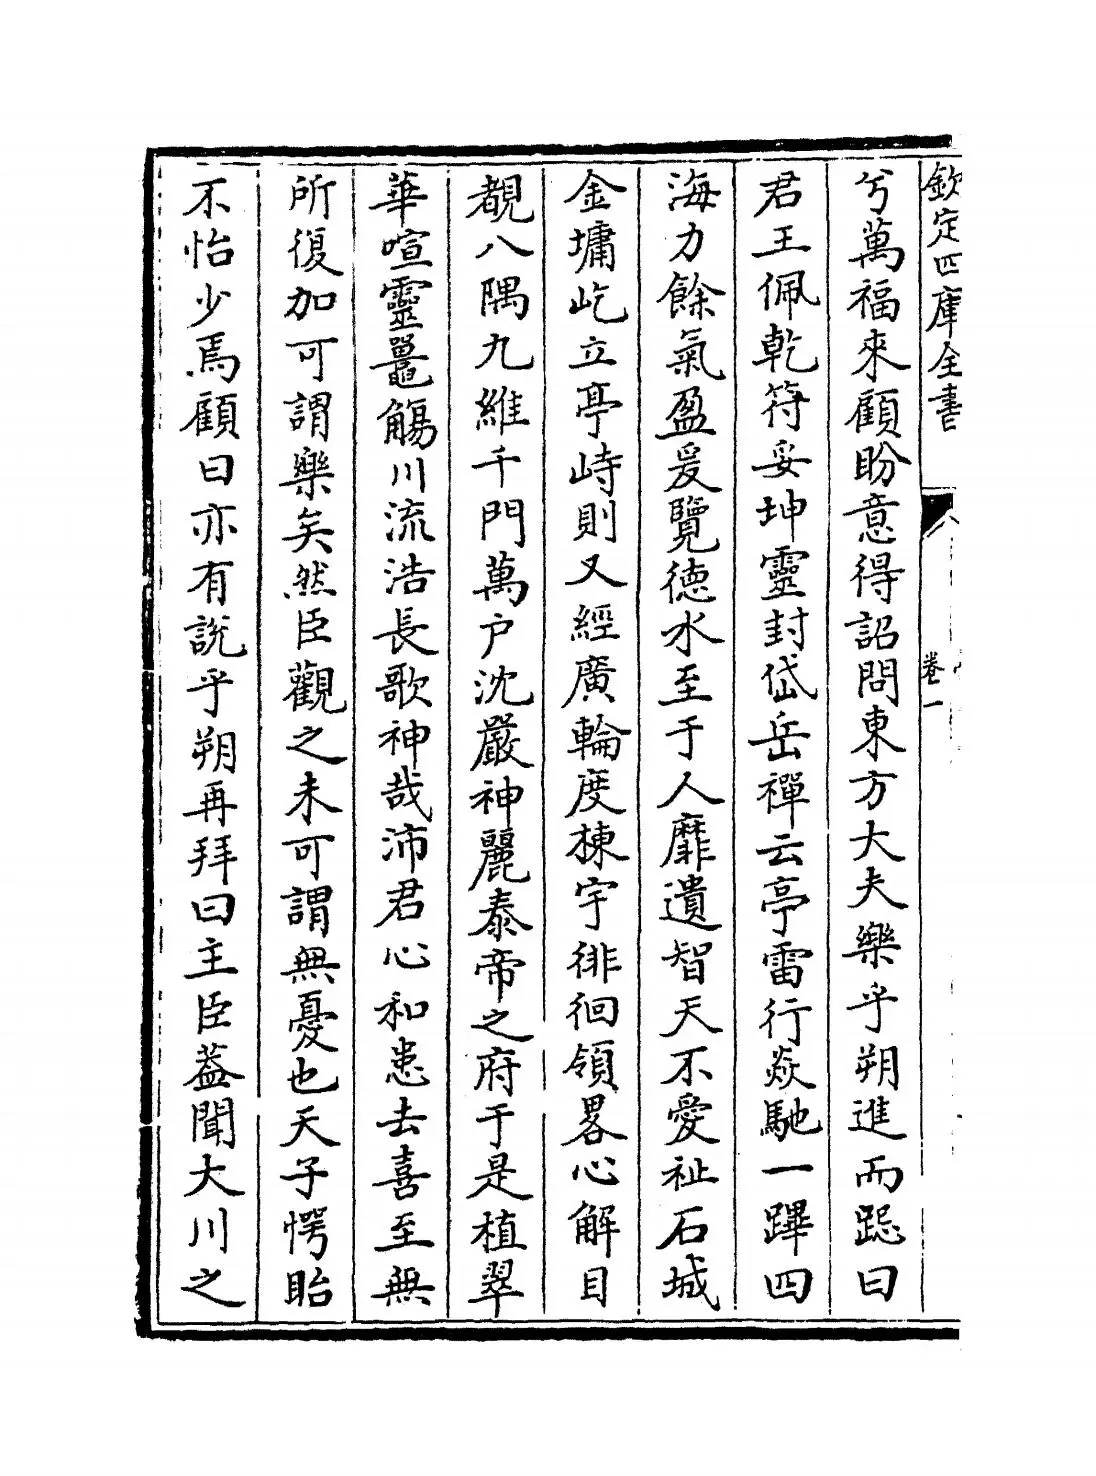 欽定四庫全書
卷一
兮萬福來顧盼意得詔問東方大夫樂乎朔進而跽曰
君王佩乾符妥坤靈封岱岳禪云亭雷行焱馳一蹕四
海力餘氣盈爰覽德水至于人靡遺智天不愛祉石城
金墉屹立亭峙則又經廣輪度棟宇徘徊領畧心解目
覩八隅九維千門萬户沈嚴神麗泰帝之府于是植翠
華喧靈鼉觴川流浩長歌神哉沛君心和恚去喜至無
所復加可謂樂矣然臣觀之未可謂無憂也天子愕眙
不怡少焉顧曰亦有說乎朔再拜曰主臣葢聞大川之